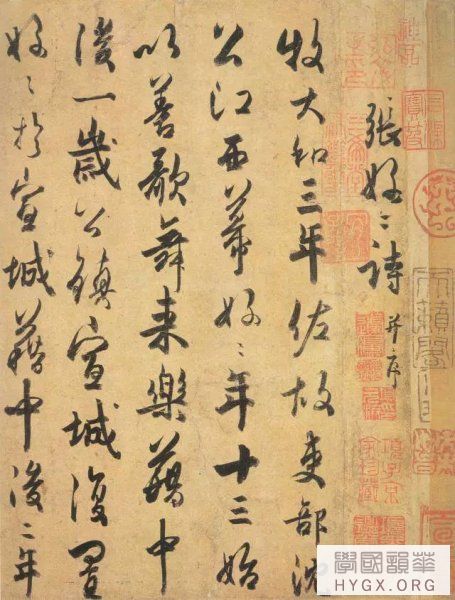 張好〻詩 并序
牧大和三年佐故吏部沈
公江西幕好〻年十三始
以善歌舞來樂籍中
後一歲公鎮宣城復置
好〻於宣城籍中後二年
天籟閣
學國韻華
HYGX.ORG